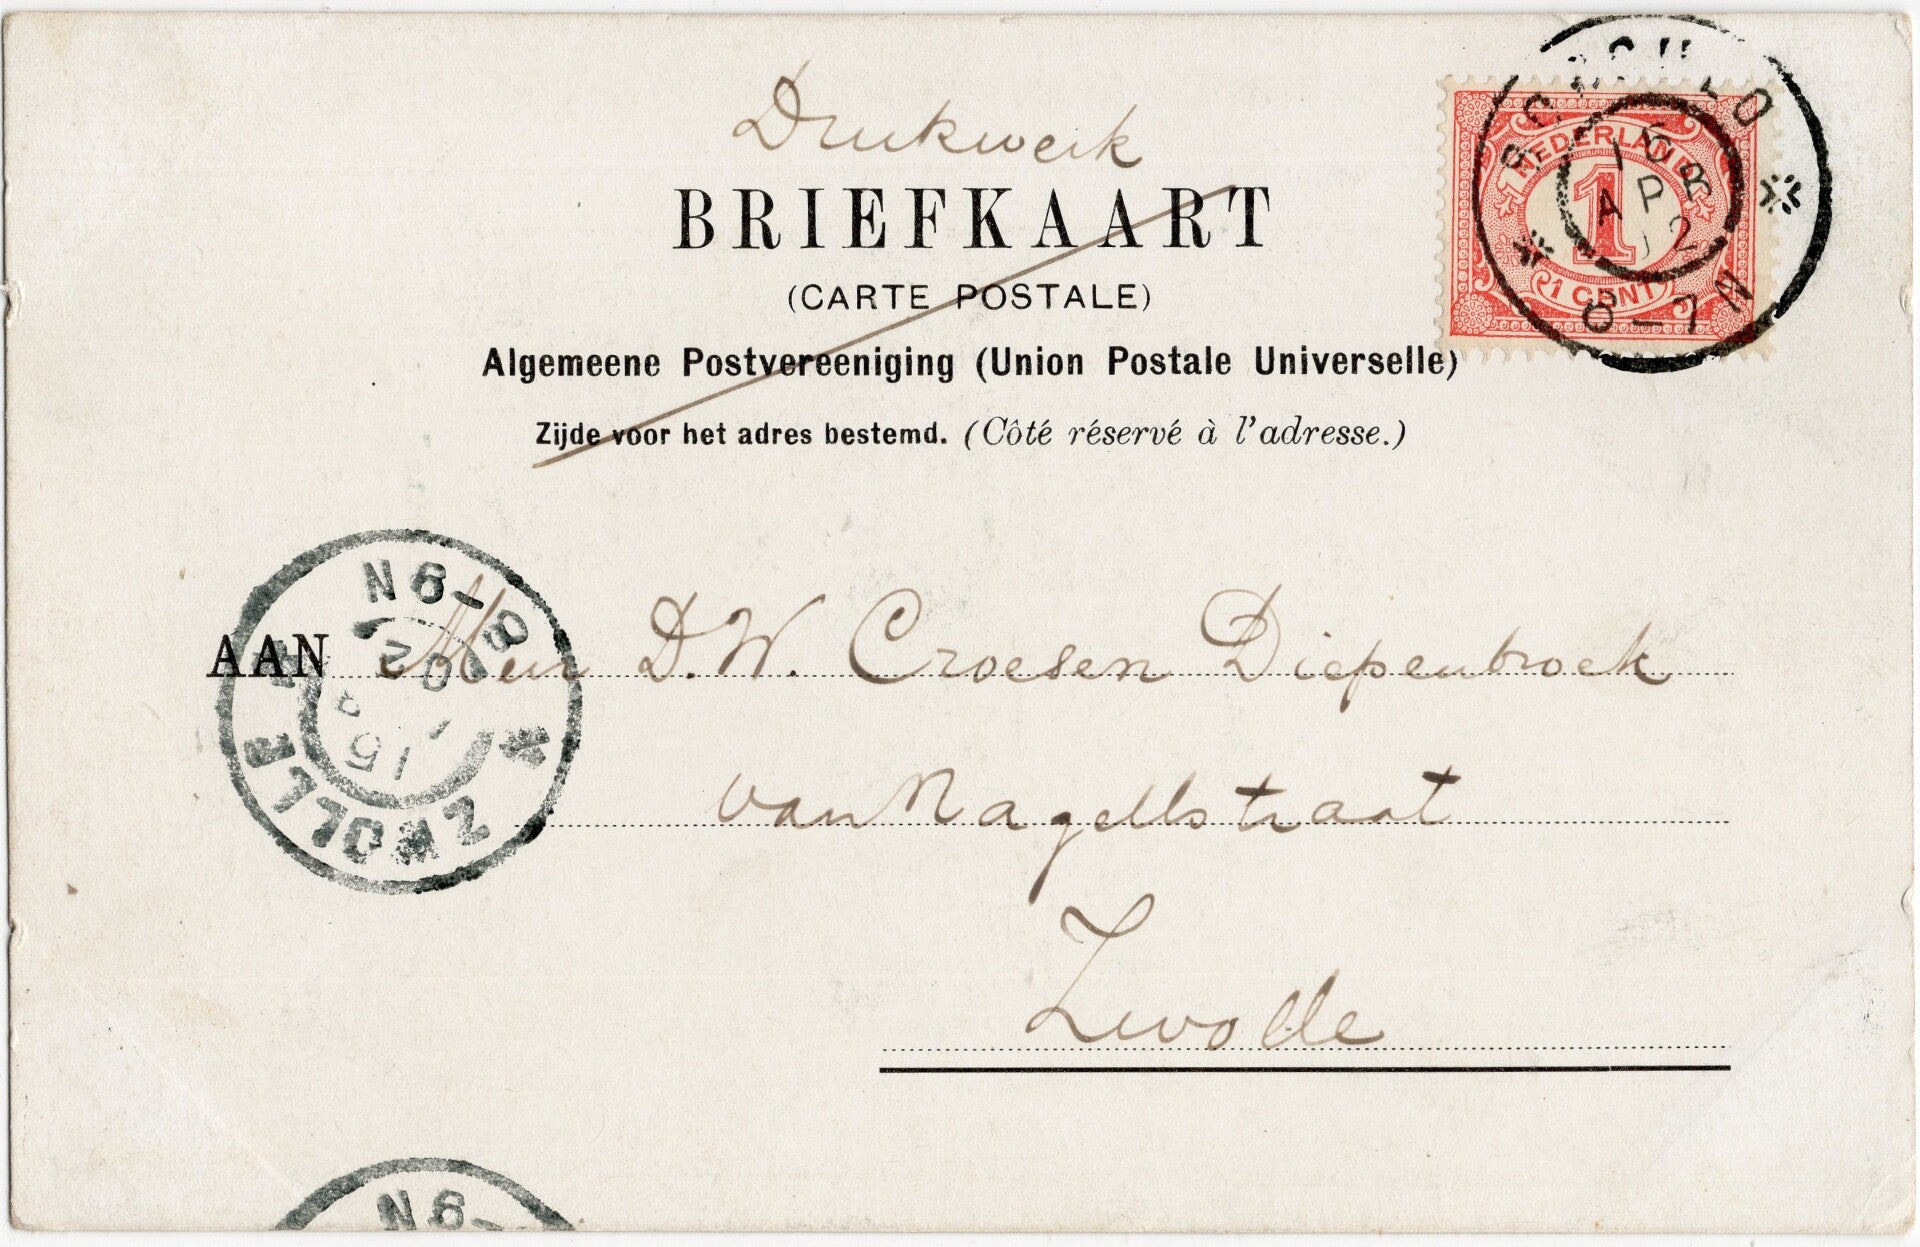 Drukwerk
BRIEFKAART
(CARTE POSTALE)
Algemeene Postvereeniging (Union Postale Universelle)
Zijde voor het adres bestemd. (Côté réservé à l'adresse.)
NEDERLAND
1
1 CENT
APR
6-7N
AAN
D. W. Croesen Diepenbrock
van Nagellstraat
Zwolle
ZWOLLE
15
02
8-9N
8-9N